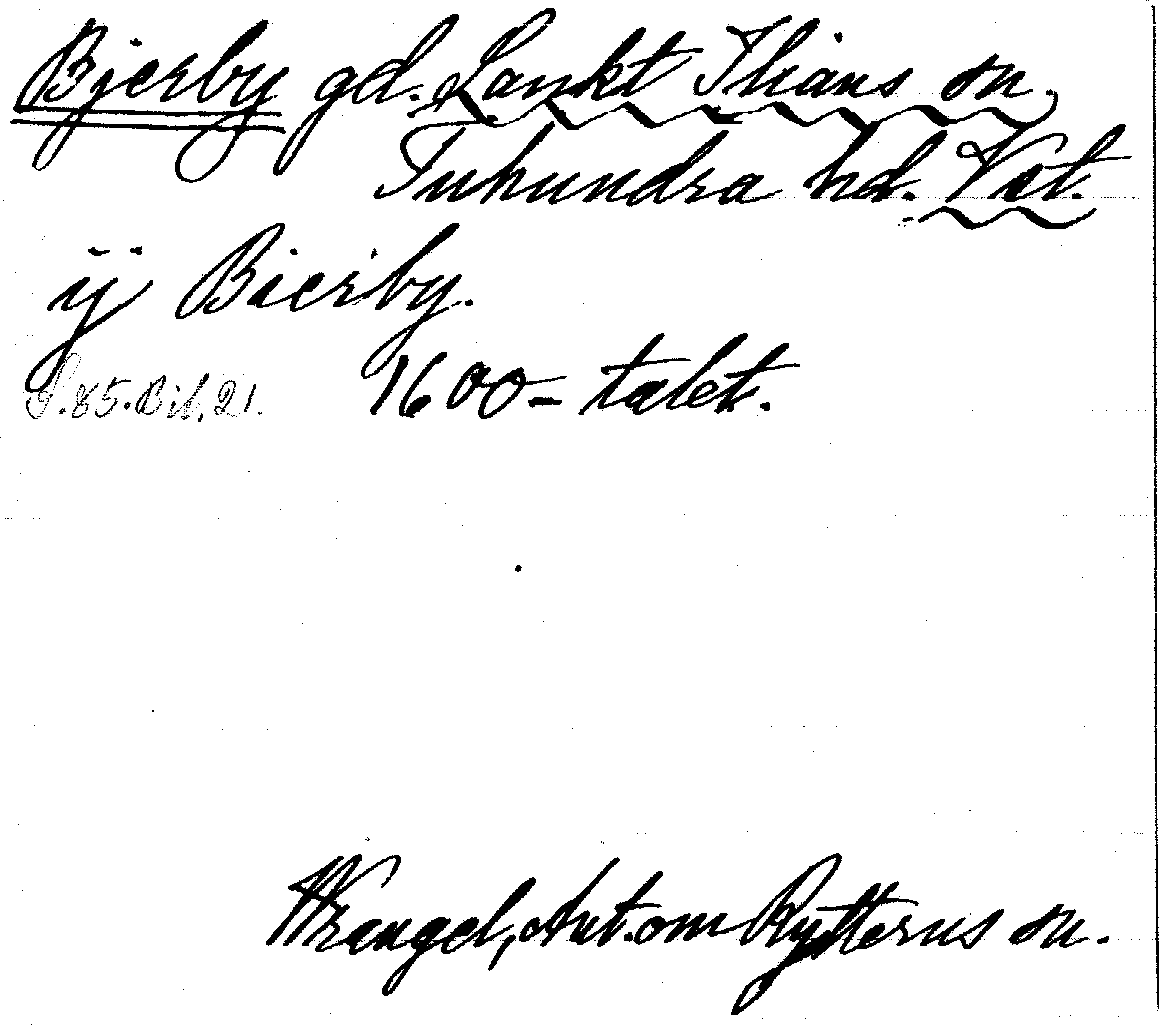 Bjerby gd. Sankt Ilians sn.
Tuhundra hd. Vst.
ij Bierby.
S. 85. Bil. 21. 1600-talet.
Wrangel, Ant. om Rytterns sn.